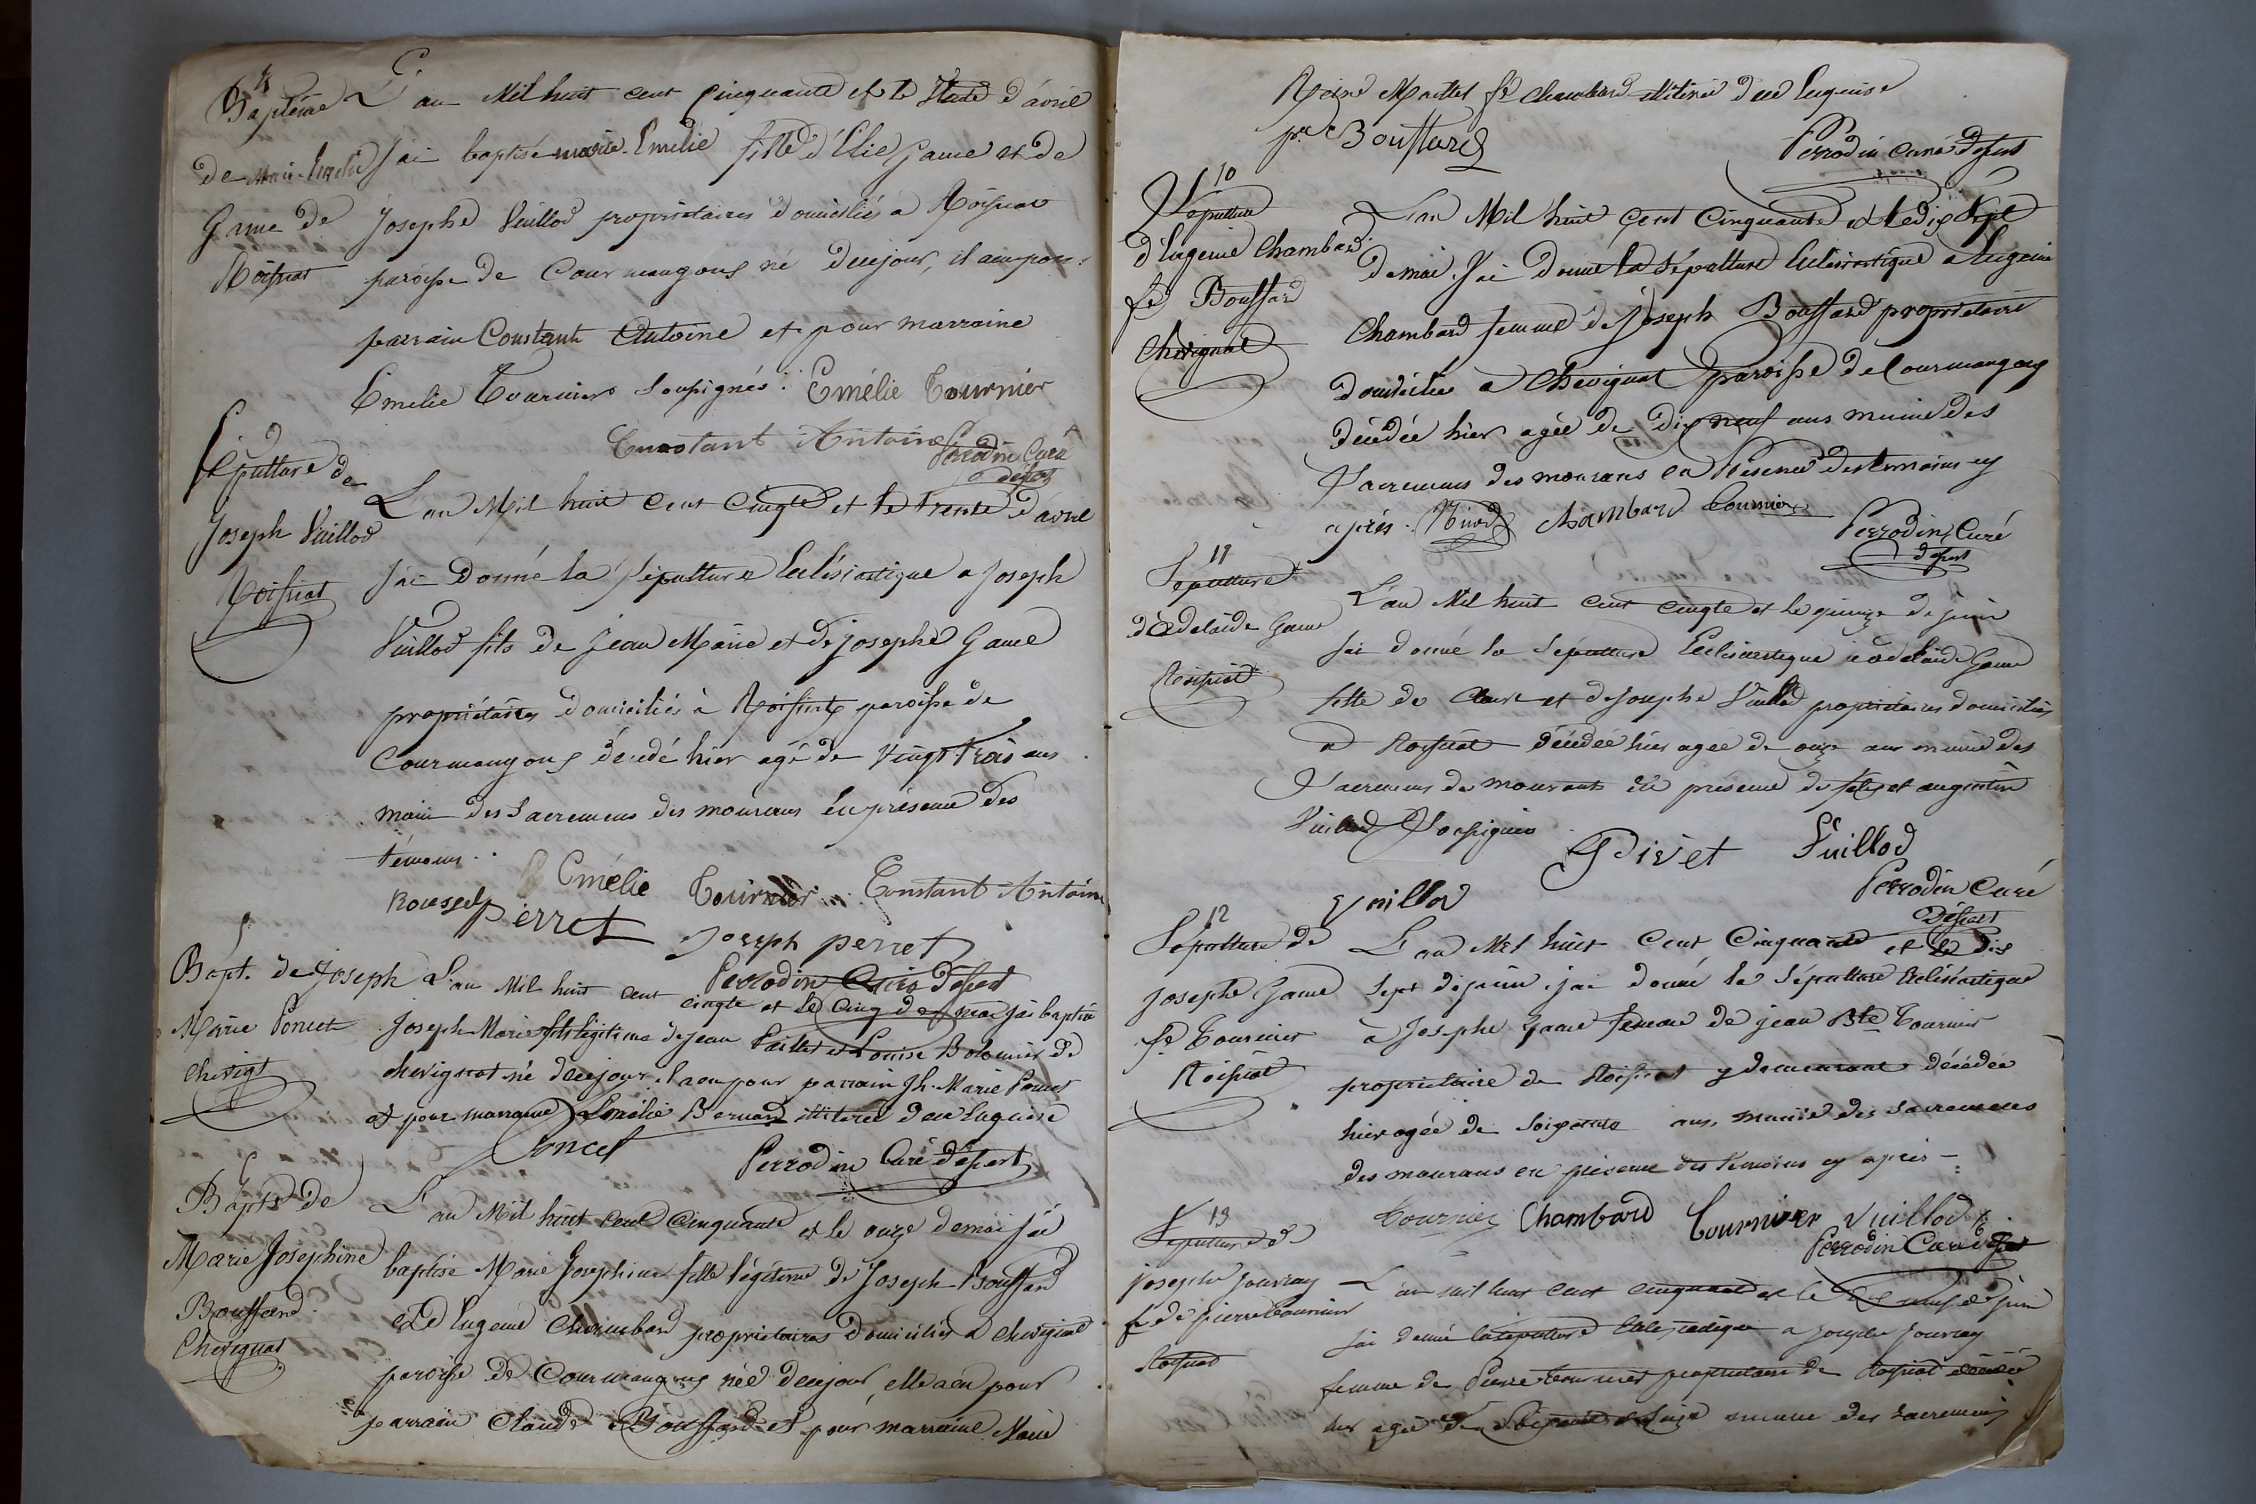 4
Baptême
de Marie-Emelie
Game de
Roissiat
L'an Mil huit cent cinquante et le trente d'avril
J'ai baptisé marie-Emelie fille d'Elie Game et de
Josephe Vuillod propriétaires domiciliés a Roissiat
paroisse de Courmangoux né decejour, il a eu pour
parrain Constant Antoine et pour marraine
Emelie Tournier soussignés. Emélie Tournier
Constant Antoine Perrodin Curé
desst
Sépulture de
Joseph Vuillod
Roissiat
L'an Mil huit cent cinqte et le trente d'avril
J'ai donné la sépulture Eclésiastique a Joseph
Vuillod fils de Jean Marie et de josephe Game
propriétaires domiciliés à Roissiat paroisse de
Courmangoux décédé hier agé de vingt trois ans
muni des Sacremens des mourans en présence des
témoins.
Emélie Tournier Constant Antoine
Roussel Perret
Joseph perret
Perrodin Curé Desst
Bapt. de Joseph
Marie Poncet
Chevigt
L'an Mil huit cent cinqte et le cinq de mai j'ai baptisé
Joseph Marie fils légitime de Jean et Louise Bolomier de
chevignat né decejour, il a eu pour parrain Jh. Marie Poncet
et pour marraine Emélie Bernard illitérée dece enquise
Poncet
Perrodin Curé desst
Bapts de
Marie Josephine
Bouffard.
Chevignat
L'an Mil huit cent cinquante et le onze demai j'ai
baptisé Marie Josephine fille légitime de Joseph Bouffard
et d'Eugenie Chambard propriétaires domiciliés a chevignat
paroisse de Courmangoux née decejour, elle a eu pour
parrain Claude Bouffard et pour marraine Marie
Reine Mottet fe Chambard illitérée dece enquise
Bouffard
Perrodin curé desst
10
Sépulture
d'Eugenie Chambard
fe Bouffard
Chevignat
L'an Mil huit Cent Cinquante et le dix Sept
de mai J'ai donné la Sépulture Eclésiastique a Eugenie
Chambard femme de Joseph Bouffard propriétaire
domiciliée a Chevignat paroisse de Courmangoux
décédée hier agée de dix neuf ans munie des
Sacremens des mourans en Présence des temoins cy
après. chambard Tournier
Perrodin, Curé
desst
11
Sépulture
d'adelaïde Game
Roissiat
L'an Mil huit cent cinqte et le quinze de juin
j'ai donné la Sépulture Eclésiastique a adelaïde Game
fille de Claude et de Josephe Vuillod propriétaires domiciliés
a Roissiat décédée hier agée de onze ans munie des
Sacremens des mourants en présence de felix et augustin
Vuillod Soussignés
Pivet Vuillod
Vuillod
Perrodin Curé
Desst
12
Sépulture de
Josephe Game
fe Tournier
Roissiat
L'an Mil huit Cent Cinquante et le dix
sept de juin, j'ai donné la Sépulture Eclésiastique
à Josephe Game femme de jean Bte Tournier
propriétaire de Roissiat y demeurant décédée
hier agée de Soixante ans, munie des Sacremens
des mourans en présence des témoins cy après
Tournier Chambard Tournier Vuillod
Perrodin Curé desst
13
Sépulture de
josephe Jouvray
fe de pierre tournier
Roissiat
L'an mil huit cent cinquante et le dix neuf de juin
j'ai donné la sépulture Eclésiastique a josephe Jouvray
femme de Pierre tournier propriétaire de Roissiat décédée
hier agée de Soixante et Seize munie des Sacremens